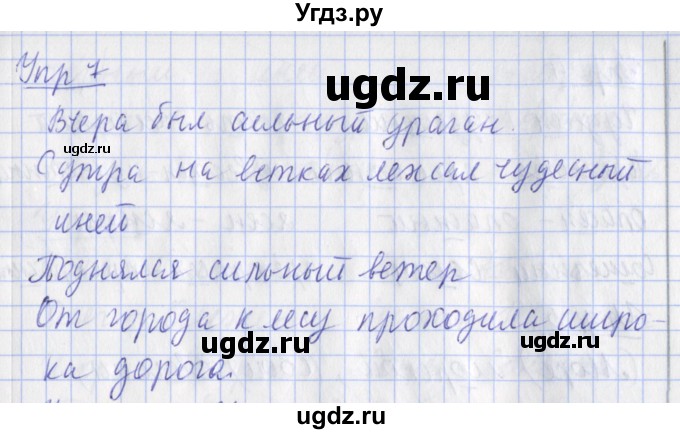 Угдз.ру
Упр 7
ugdz.ru
Вчера был сильный ураган.
Сутра на ветках лежал чудесный
иней
ugdz.ru
Поднялся сильный ветер
От города к лесу проходила широ-
ugdz.ru
ugdz.ru
ка дорога.
ugdz.ru